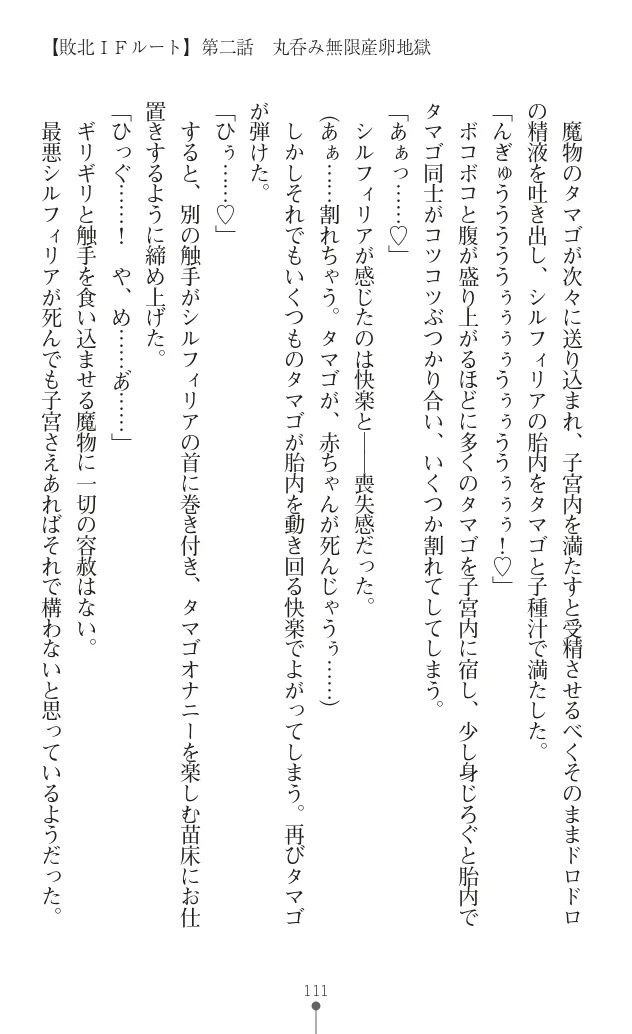 【敗北ＩＦルート】第二話　丸呑み無限産卵地獄
　魔物のタマゴが次々に送り込まれ、子宮内を満たすと受精させるべくそのままドロドロ
の精液を吐き出し、シルフィリアの胎内をタマゴと子種汁で満たした。
「んぎゅうううううぅぅぅぅうぅぅううぅぅぅ！♡」
　ボコボコと腹が盛り上がるほどに多くのタマゴを子宮内に宿し、少し身じろぐと胎内で
タマゴ同士がコツコツぶつかり合い、いくつか割れてしてしまう。
「あぁっ……♡」
　シルフィリアが感じたのは快楽と――喪失感だった。
（あぁ……割れちゃう。タマゴが、赤ちゃんが死んじゃうぅ……）
　しかしそれでもいくつものタマゴが胎内を動き回る快楽でよがってしまう。再びタマゴ
が弾けた。
「ひぅ……♡」
　すると、別の触手がシルフィリアの首に巻き付き、タマゴオナニーを楽しむ苗床にお仕
置きするように締め上げた。
「ひっぐ……！　や、め……あ゛……」
　ギリギリと触手を食い込ませる魔物に一切の容赦はない。
　最悪シルフィリアが死んでも子宮さえあればそれで構わないと思っているようだった。
111